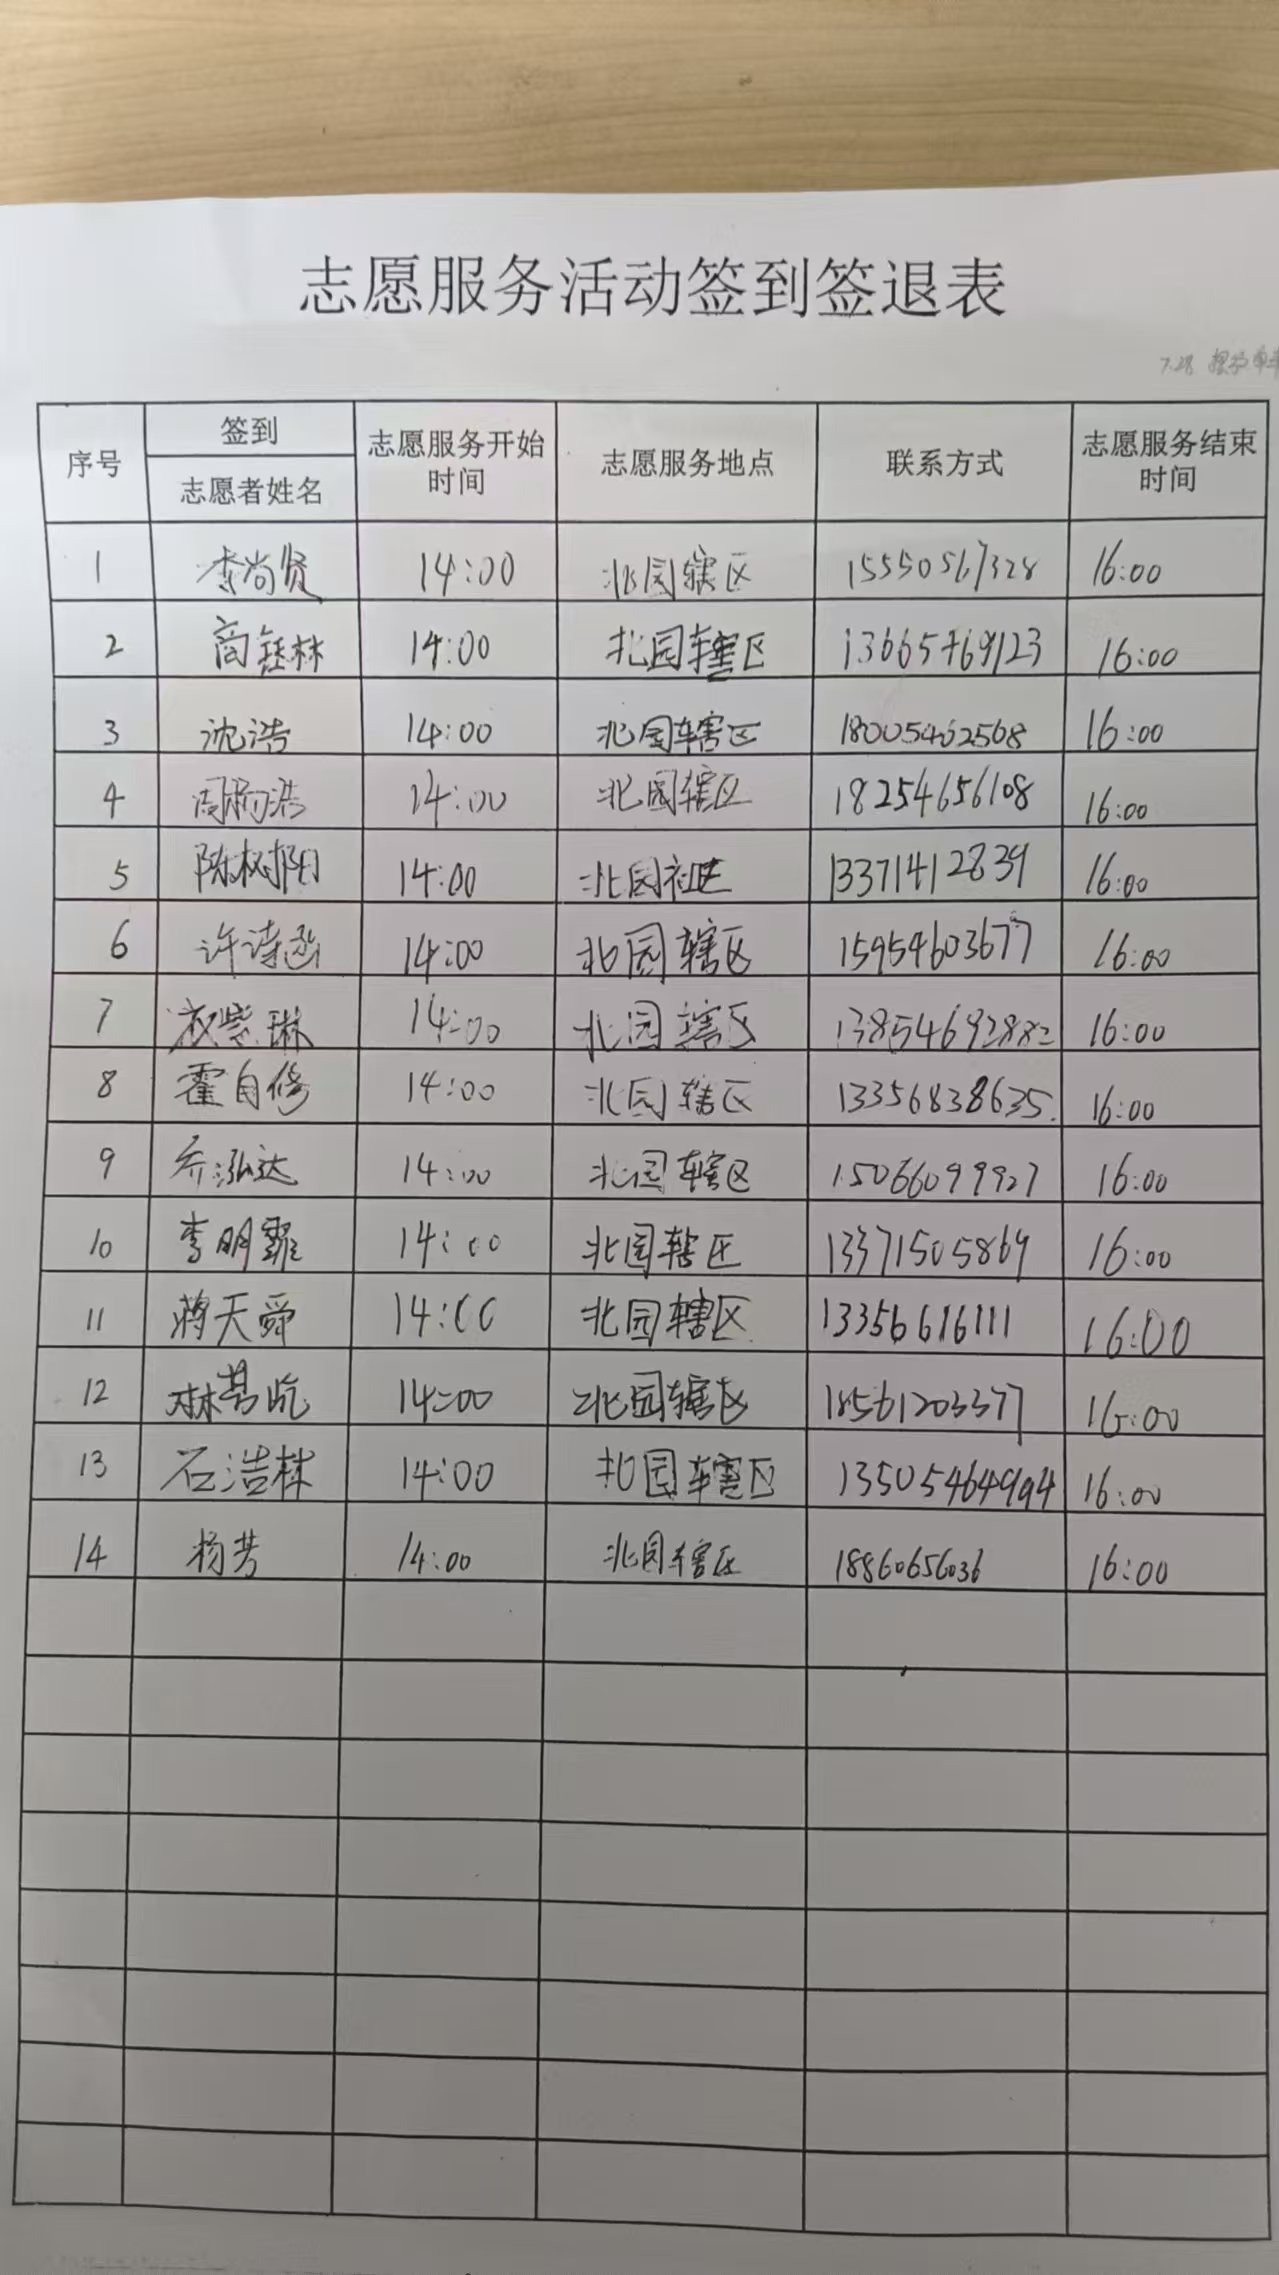 志愿服务活动签到签退表
7.28
序号 签到 志愿服务开始时间 志愿服务地点 联系方式 志愿服务结束时间
志愿者姓名
1 李尚贤 14:00 北园辖区 15550567328 16:00
2 商钰林 14:00 北园辖区 13665469123 16:00
3 沈浩 14:00 北园辖区 18005462568 16:00
4 14:00 北园辖区 18254656108 16:00
5 陈树阳 14:00 北园 13371412839 16:00
6 许诗涵 14:00 北园辖区 15954603677 16:00
7 紫琳 14:00 北园辖区 13854692882 16:00
8 霍自修 14:00 北园辖区 13356838635. 16:00
9 乔泓达 14:00 北园辖区 15066099927 16:00
10 李明霏 14:00 北园辖区 13371505869 16:00
11 蒋天舜 14:00 北园辖区 13356616111 16:00
12 14:00 北园辖区 18561203377 16:00
13 石浩林 14:00 北园辖区 13505464994 16:00
14 杨芳 14:00 北园辖区 18860656036 16:00